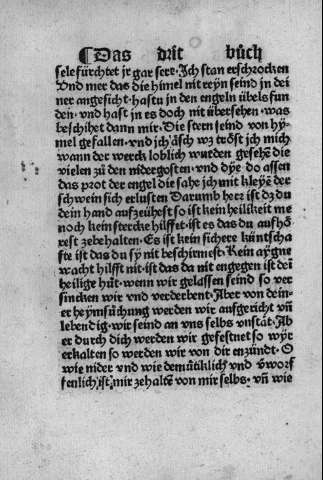 ¶ Das drit bůch
sele fürchtet jr gar sere. Ich stan erschrocken
Vnd mer das die himel nit reyn seind in dei
ner angesicht. hastu in den engeln übels fun
den. vnd hast in es doch nit übersehen. was
beschihet dann mir. Die stern seind von hy-
mel gefallen. vnd jch äsch wz tröst jch mich
wann der werck loblich wurden gesehē die
vielen zu den nidergosten. vnd dye do assen
das prot der engel die sahe jch mit kleyē der
schwein sich erlusten Darumb herr ist dz du
dein hand aufzeühest so ist kein heilikeit me
noch kein stercke hilffet. ist es das du aufhö
rest zebehalten. Es ist kein sichere küntscha
fte ist das du sy nit beschirmest. Kein aygne
wacht hilfft nit. ist das da nit engegen ist dei
heilige hůt. wenn wir gelassen seind so ver
sincken wir vnd verderbent. Aber von dein-
er heymsůchung werden wir aufgericht vn̄
lebendig. wir seind an vns selbs vnstät. Ab
er durch dich werden wir gefestnet so wyr
erkalten so werden wir von dir enzündt. O
wie nider vnd wie demütiklich vnd v̈worf
fenlich ist mir zehaltē von mir selbs. vn̄ wie